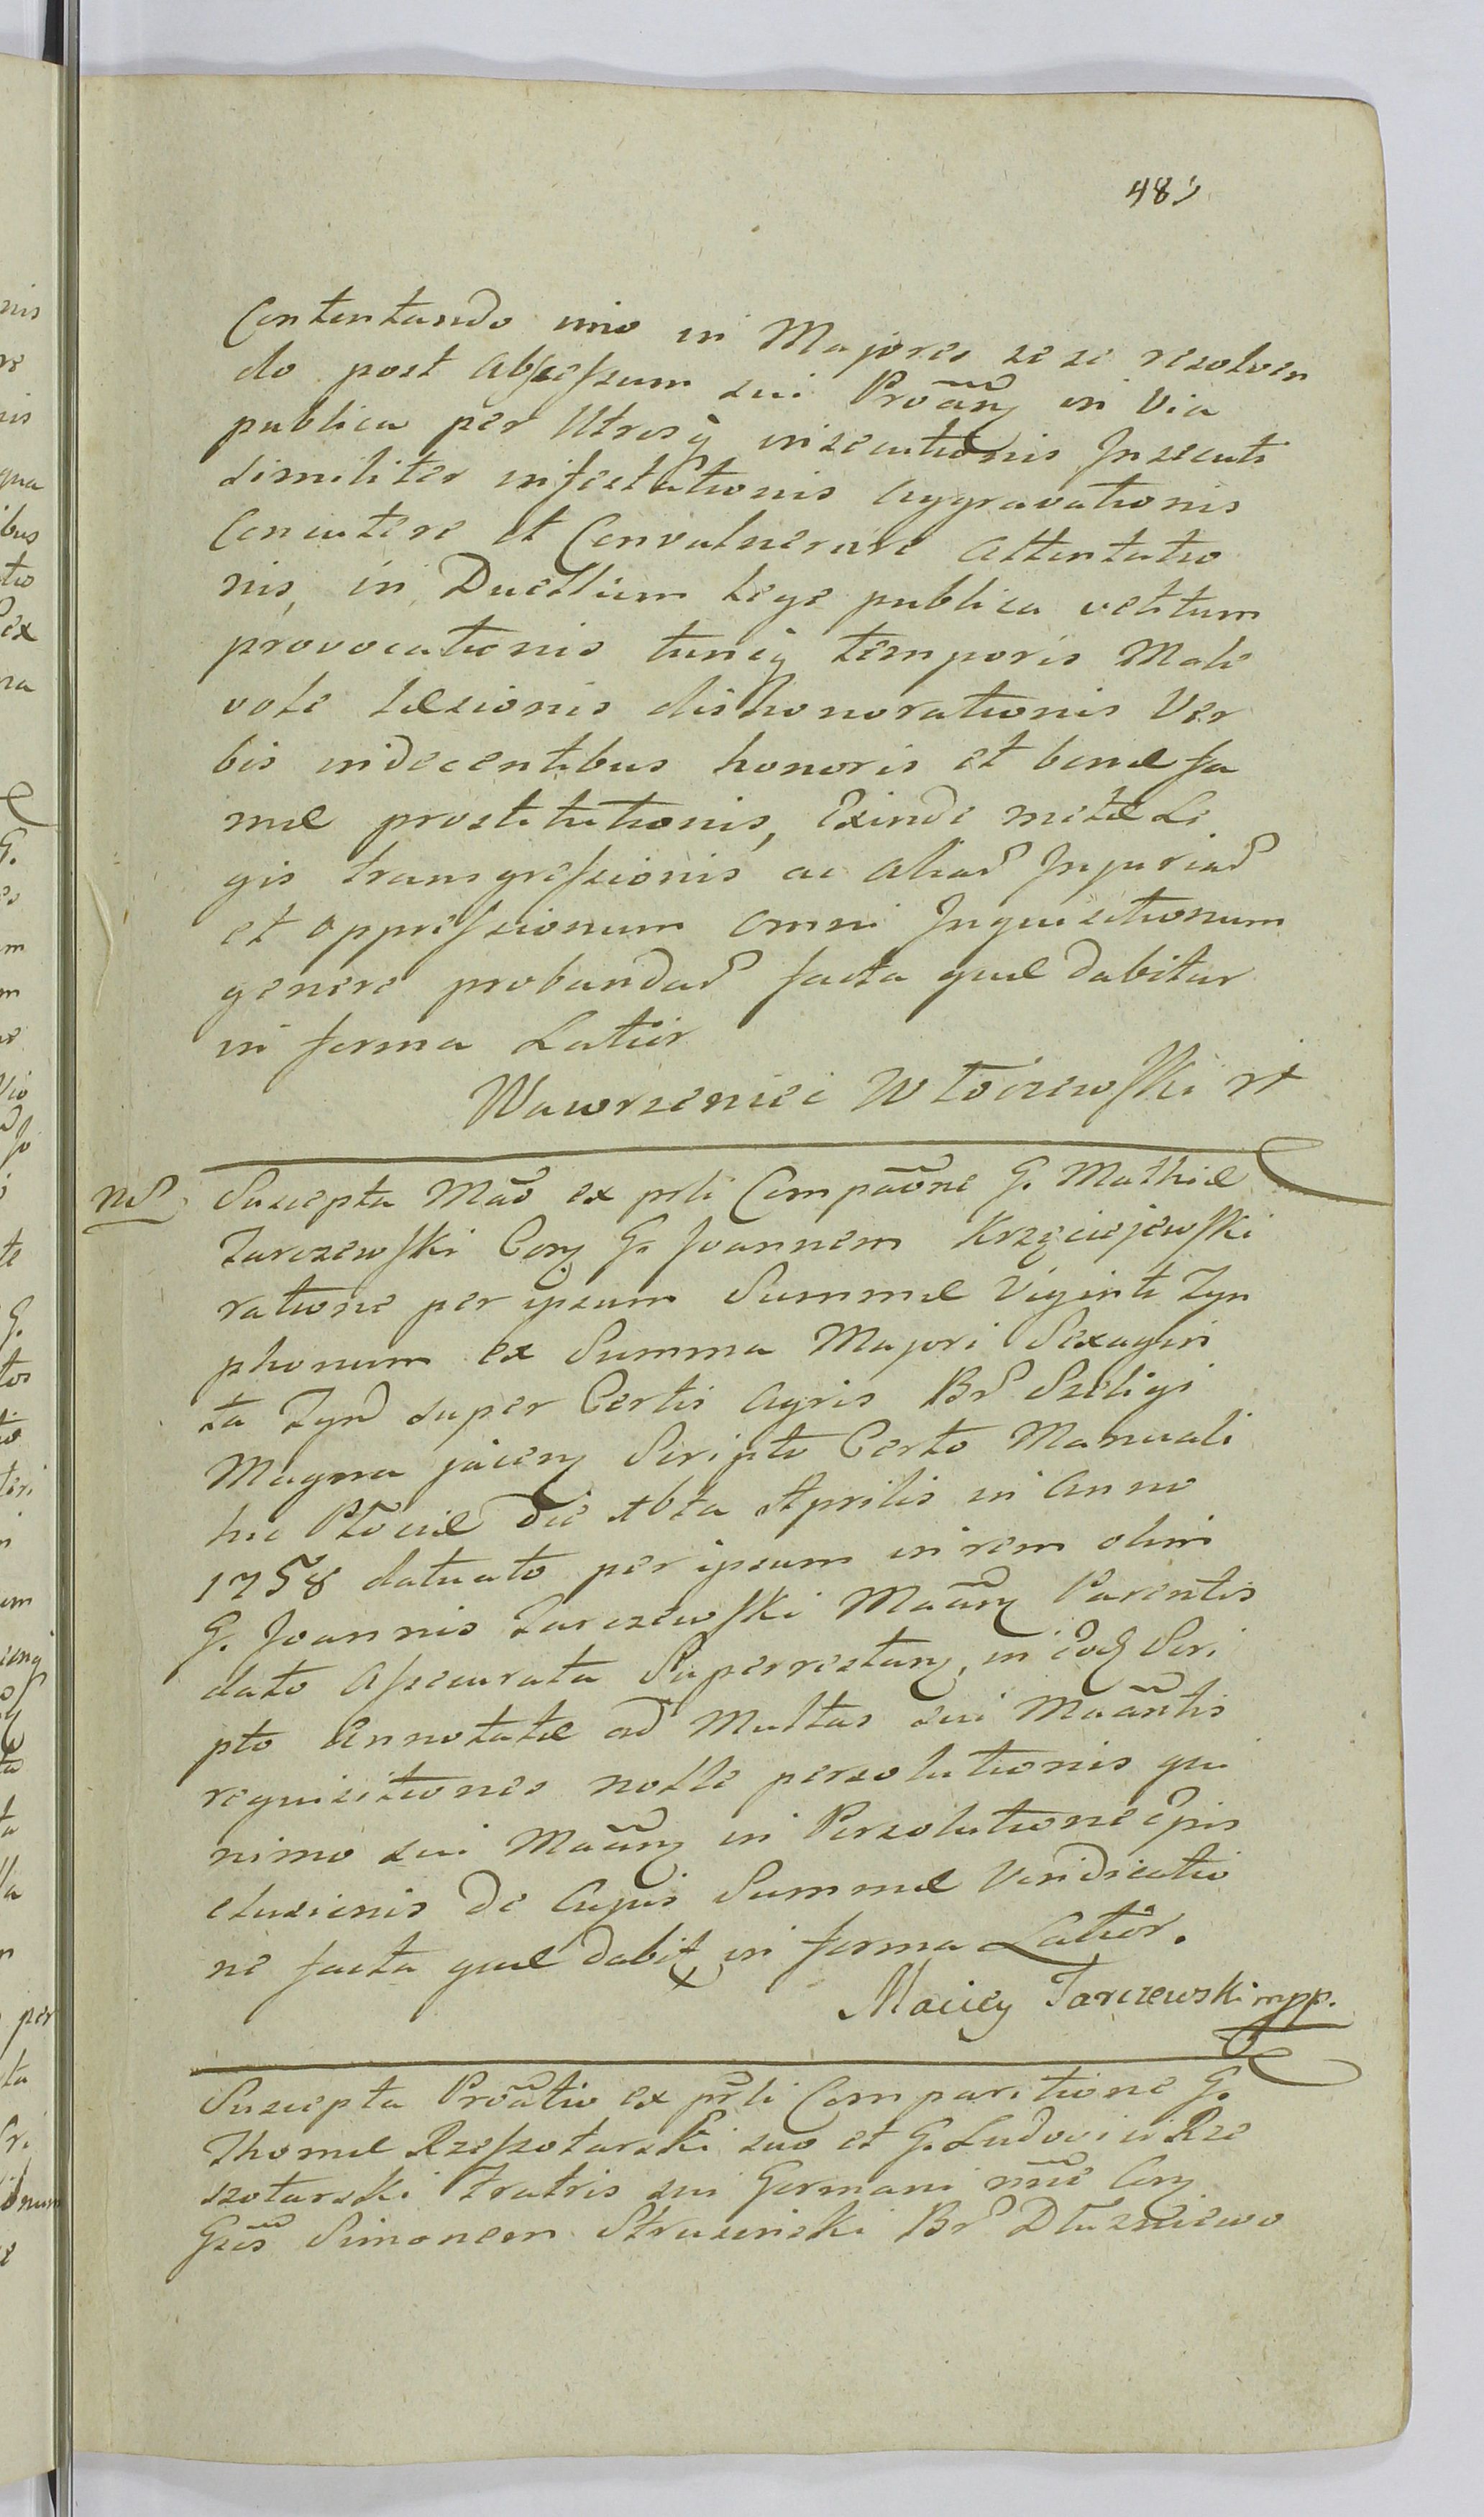 483
Contentando imo in Majores sese resolven
do post abscessum sui Proãn̄ in Via
publica per Utrosq̃ insecutionis Insecuti
similiter infestationis aggravationis
Concutere et Convulnerare attentatio
nis, in Duellum Lege publica vetitum
provocationis tuncq̃ temporis Male
vole Læsionis dishonorationis Ver
bis indecentibus honoris et benæ fa
mæ prostitutionis, Exinde metæ Le
gis transgressionis ac aliar̃ Injuriar̃
et oppressionum omni Inquisitionum
genere probandar̃ facta quæ dabitur
in forma Latior
Wawrzeniec Włoczewski
Suscepta Mão ex prli Compaõne G. Mathiæ
Tarczewski Con̄ G. Joannem Krzęciejewski
ratione per ipsum Summæ Viginti Tyn
phonum ex Summa Majori Sexagin
ta Tyn̄ super Certis Agris Br̃ Szeligi
Magna jacen̄ Scripto Certo Manuali
hic Płociæ die Aprilis in Anno
1758 datuato per ipsum in rem olim
G. Joannis Tarczewski Mãan̄ Parentis
dato Assecurata Superrestan̄, in eod̄ Scri
pto Annotatæ ad Multas sui Mãantis
requisitiones nolle persolutionis qui
nimo sui Mãan̄ in Persolutione Ejus
elusionis de Cujus Summæ Vindicatio
ne facta quæ dabit̃ in forma Latior.
Maciey Tarczewski mpp.
Suscepta Proãtio ex prli Comparitione G.
Thomæ Rzeszotarski suo et G. Ludovici Rze
szotarski Fratris sui Germani nñe Con̄
Gsũs Simonem Strusinski Br̃ Dłuzniewo